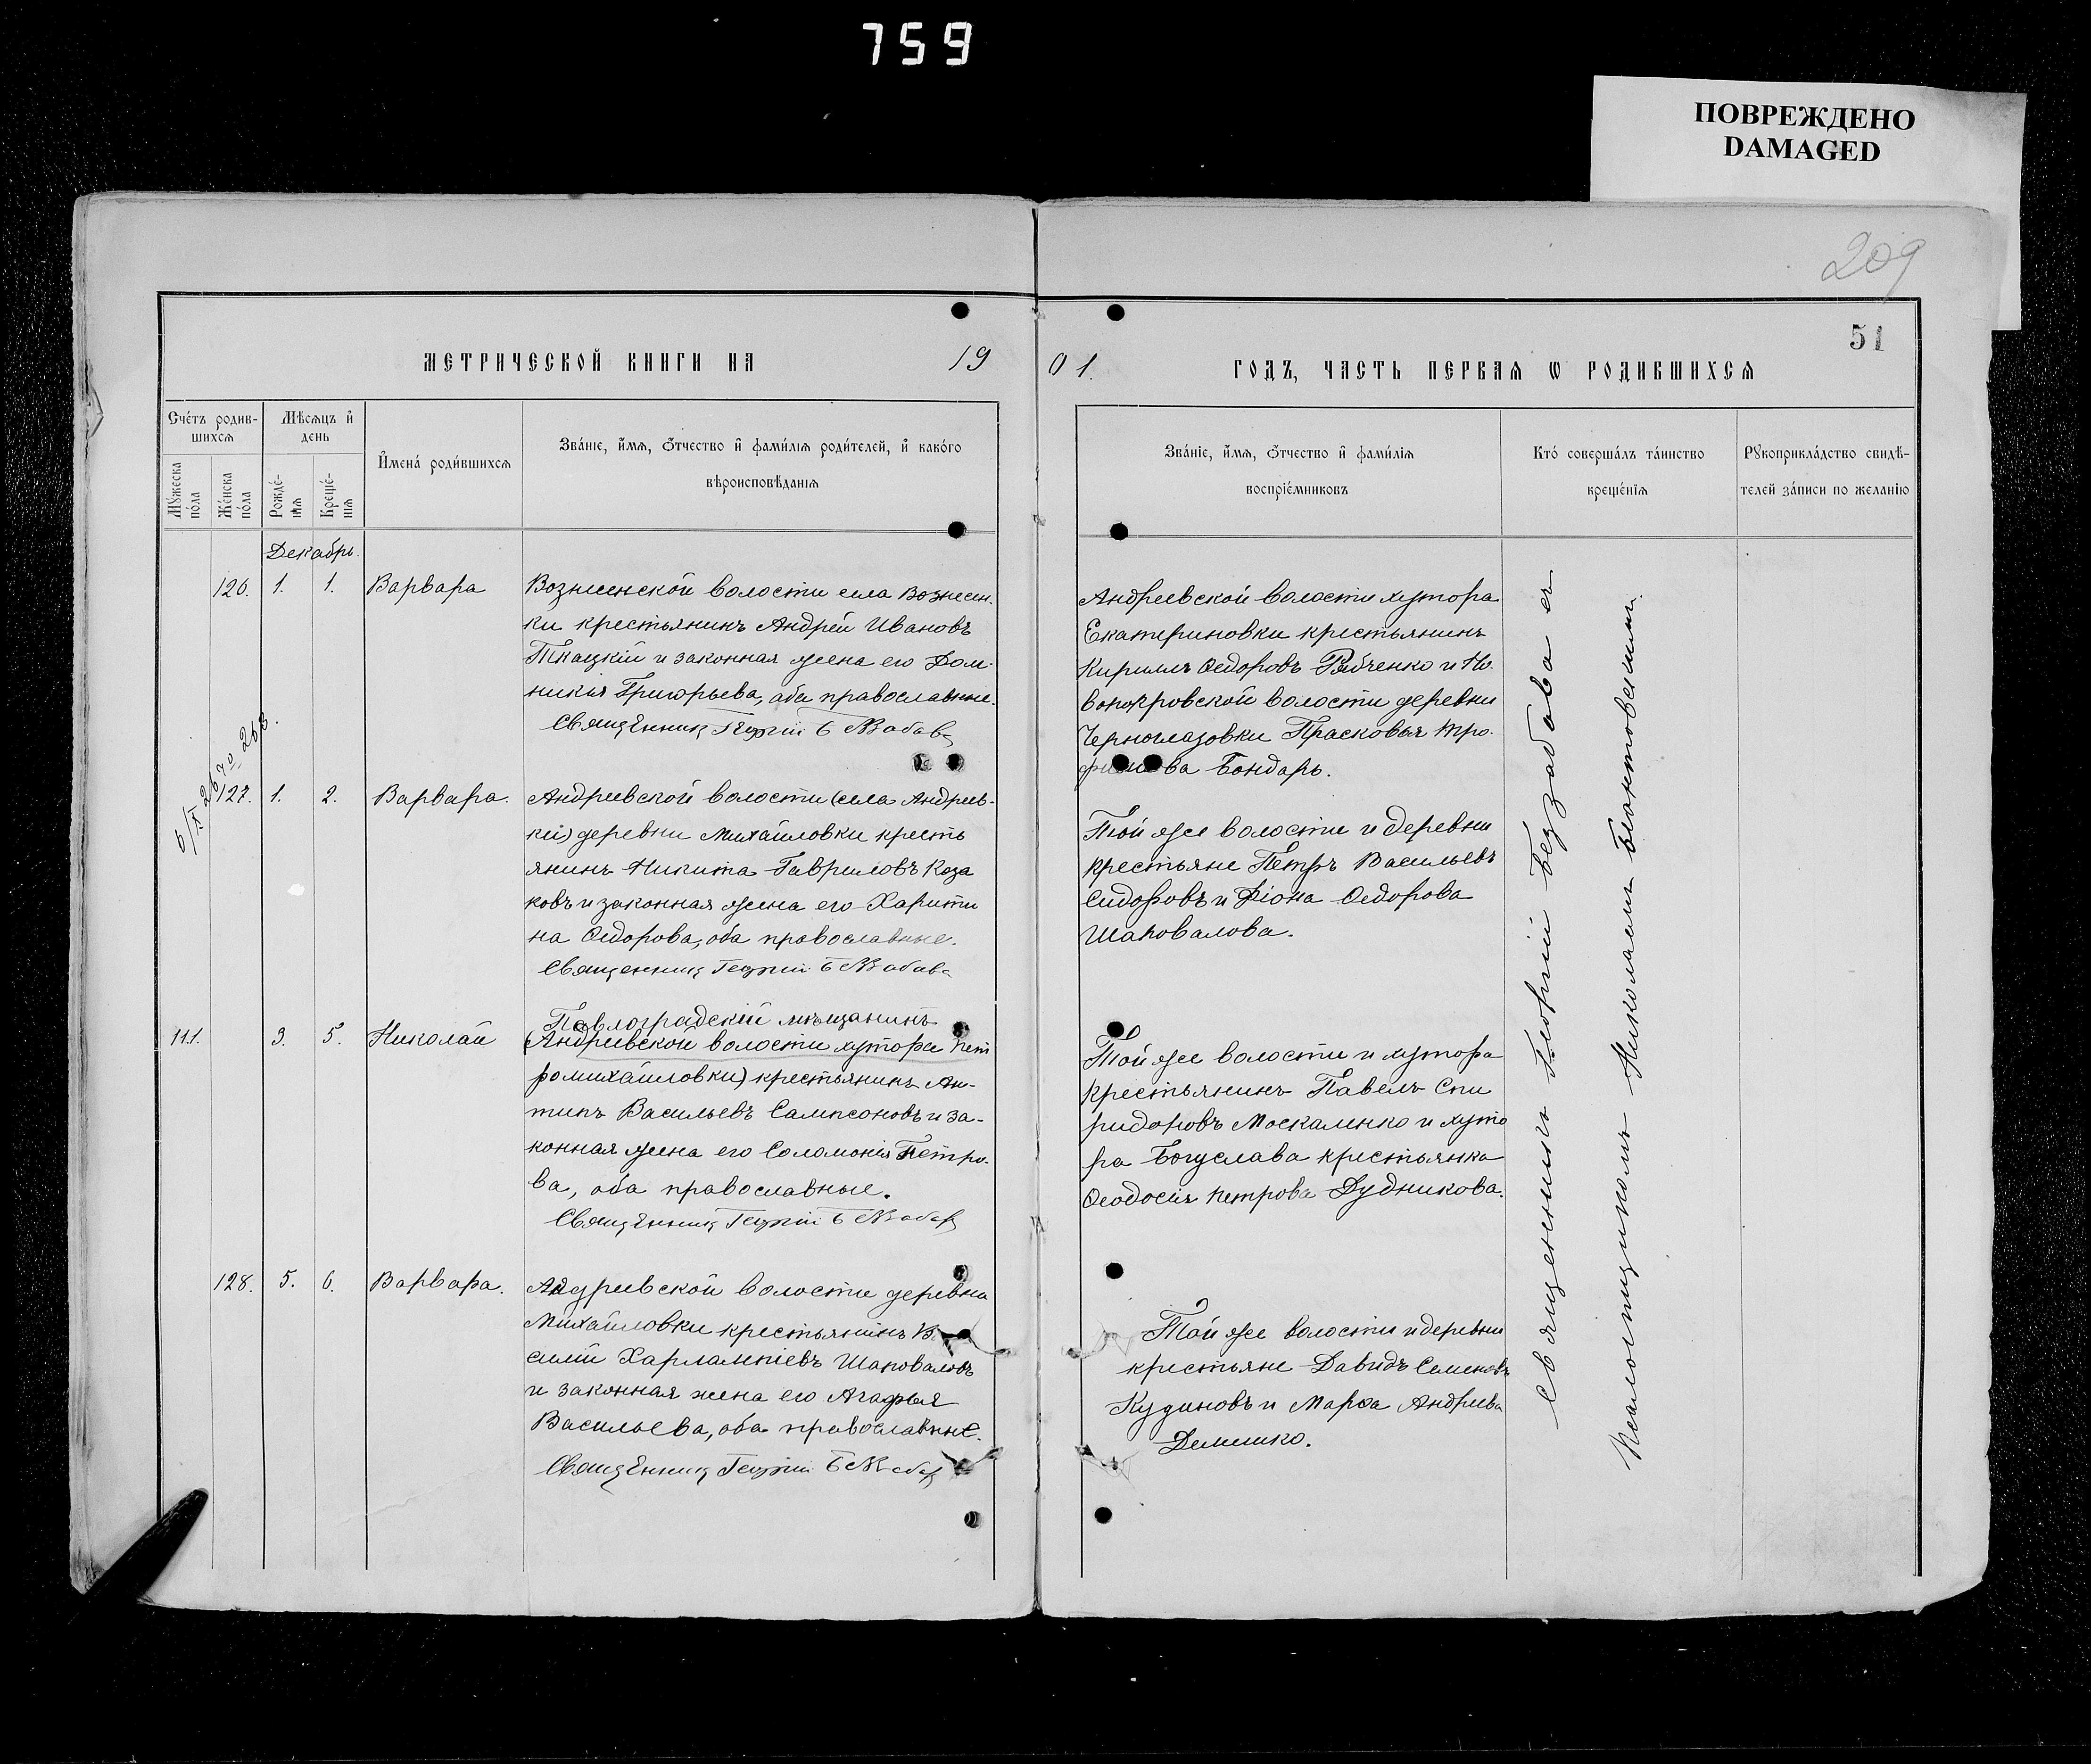 759
ПОВРЕЖДЕНО
DAMAGED
209
51
МЕТРИЧЕСКОЙ КНИГИ НА 19
01. ГОДЪ, ЧАСТЬ ПЕРВАЯ Ѡ РОДИВШИХСЯ
Счетъ родив-
шихся
Мѣсяцъ и
день
Мужеска
пола
Женска
пола
Рожде-
нія
Креще-
нія
Имена родившихся
Званіе, имя, отчество и фамилія родителей, и какого
вѣроисповѣданія
Званіе, имя, отчество и фамилія
воспріемниковъ
Кто совершалъ таинство
крещенія
Рукоприкладство свидѣ-
телей записи по желанію
Декабрь.
126. 1. 1. Варвара
Вознесенской волости села Вознесен.
ки крестьянинъ Андрей Ивановъ
Ткацкій и законная жена его Дом-
никія Григорьева, оба православные.
Священникъ Георгій
Андреевской волости хутора
Екатериновки крестьянинъ
Кириллъ Ѳедоровъ Рябченко и Но.
вопокровской волости деревни
Черноглазовки Прасковья Тро.
фимова Бондарь.
127. 1. 2. Варвара.
Андреевской волости (села Андреев-
ки) деревни Михайловки кресть
янинъ Никита Гавриловъ Коза
ковъ и законная жена его Харити
на Ѳедорова, оба православные.
Священникъ Георгій
Той же волости и деревни
крестьяне Петръ Васильевъ
Сидоровъ и Ѳедорова
Шаповалова.
111. 3. 5. Николай
Павлоградскій мѣщанинъ
(Андреевской волости хутора Пет
ромихайловки) крестьянинъ Ан-
типъ Васильевъ Сампсоновъ и за-
конная жена его Соломонія Петро-
ва, оба православные.
Священникъ Георгій
Той же волости и хутора
крестьянинъ Павелъ Спи
ридоновъ Москаленко и хуто
ра Богуслава крестьянка
Ѳеодосія Петрова Дудникова.
128. 5. 6. Варвара.
Андреевской волости деревни
Михайловки крестьянинъ Ва
силій Харлампіевъ Шаповаловъ
и законная жена его Агафья
Васильева, оба православные.
Священникъ Георгій
Той же волости и деревни
крестьяне Давидъ Семеновъ
Кудиновъ и Марѳа Андреева
Демешко.
Священникъ Георгій Беззабава съ
Псаломщикомъ Николаемъ